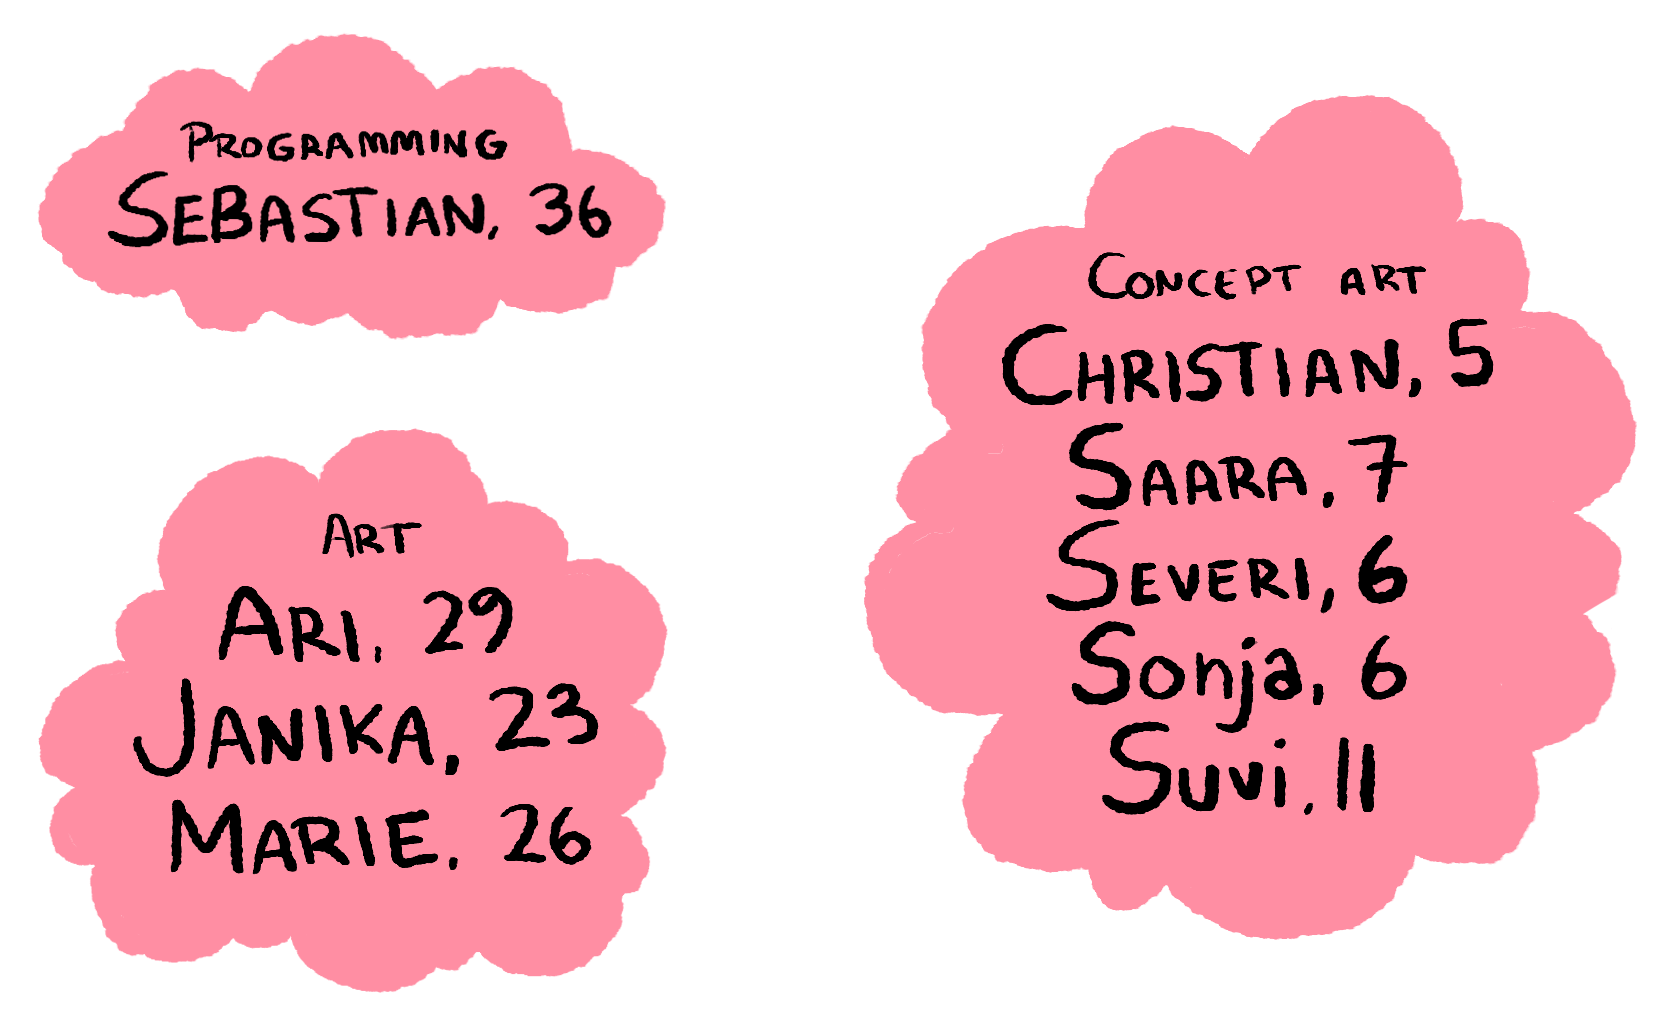 PROGRAMMING
SEBASTIAN, 36
ART
ARI, 29
JANIKA, 23
MARIE, 26
CONCEPT ART
CHRISTIAN, 5
SAARA, 7
SEVERI, 6
Sonja, 6
Suvi, 11